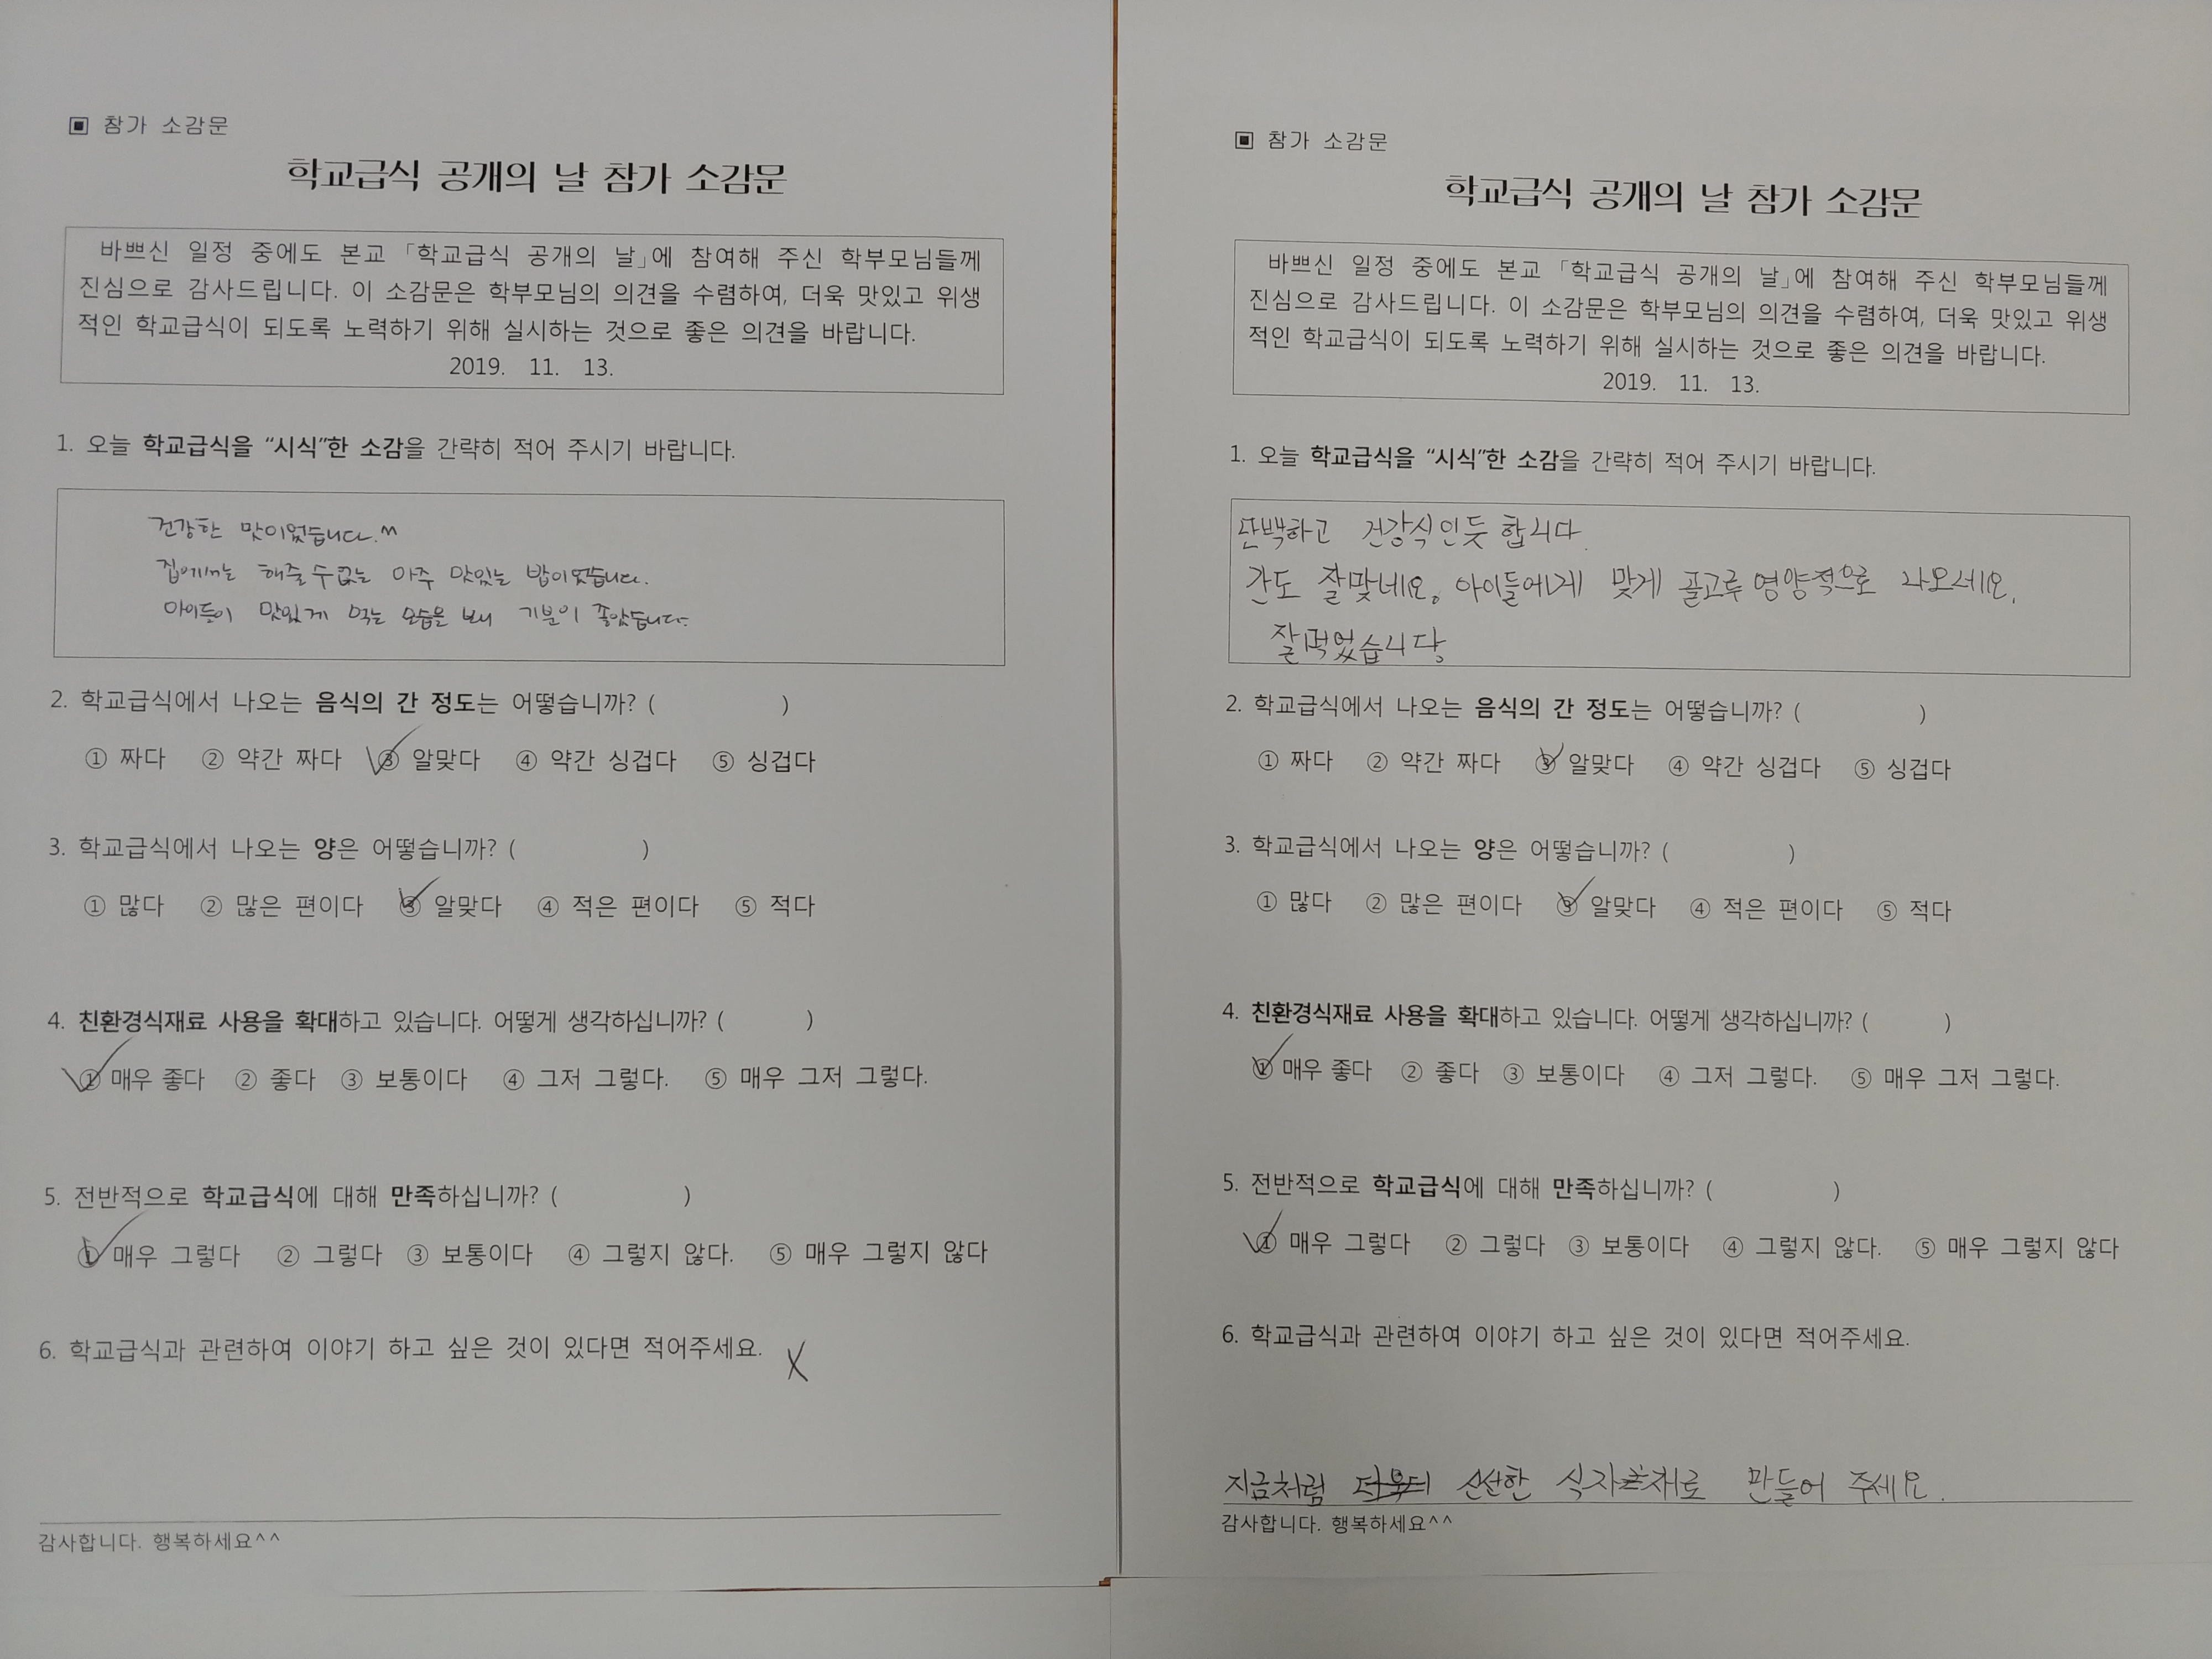 ▣ 참가 소감문
학교급식 공개의 날 참가 소감문
바쁘신 일정 중에도 본교 「학교급식 공개의 날」에 참여해 주신 학부모님들께
진심으로 감사드립니다. 이 소감문은 학부모님의 의견을 수렴하여, 더욱 맛있고 위생
적인 학교급식이 되도록 노력하기 위해 실시하는 것으로 좋은 의견을 바랍니다.
2019. 11. 13.
1. 오늘 학교급식을 “시식”한 소감을 간략히 적어 주시기 바랍니다.
건강한 맛이었습니다.^^
집에서는 해줄 수 없는 아주 맛있는 밥이었습니다.
아이들이 맛있게 먹는 모습을 보니 기분이 좋았습니다.
2. 학교급식에서 나오는 음식의 간 정도는 어떻습니까? ( )
① 짜다 ② 약간 짜다 ③ 알맞다 ④ 약간 싱겁다 ⑤ 싱겁다
3. 학교급식에서 나오는 양은 어떻습니까? ( )
① 많다 ② 많은 편이다 ③ 알맞다 ④ 적은 편이다 ⑤ 적다
4. 친환경식재료 사용을 확대하고 있습니다. 어떻게 생각하십니까? ( )
① 매우 좋다 ② 좋다 ③ 보통이다 ④ 그저 그렇다. ⑤ 매우 그저 그렇다.
5. 전반적으로 학교급식에 대해 만족하십니까? ( )
① 매우 그렇다 ② 그렇다 ③ 보통이다 ④ 그렇지 않다. ⑤ 매우 그렇지 않다
6. 학교급식과 관련하여 이야기 하고 싶은 것이 있다면 적어주세요. X
감사합니다. 행복하세요^^
▣ 참가 소감문
학교급식 공개의 날 참가 소감문
바쁘신 일정 중에도 본교 「학교급식 공개의 날」에 참여해 주신 학부모님들께
진심으로 감사드립니다. 이 소감문은 학부모님의 의견을 수렴하여, 더욱 맛있고 위생
적인 학교급식이 되도록 노력하기 위해 실시하는 것으로 좋은 의견을 바랍니다.
2019. 11. 13.
1. 오늘 학교급식을 “시식”한 소감을 간략히 적어 주시기 바랍니다.
단백하고 건강식인듯 합니다.
간도 잘맞네요. 아이들에게 맞게 골고루 영양적으로 나오네요.
잘먹었습니다
2. 학교급식에서 나오는 음식의 간 정도는 어떻습니까? ( )
① 짜다 ② 약간 짜다 ③ 알맞다 ④ 약간 싱겁다 ⑤ 싱겁다
3. 학교급식에서 나오는 양은 어떻습니까? ( )
① 많다 ② 많은 편이다 ③ 알맞다 ④ 적은 편이다 ⑤ 적다
4. 친환경식재료 사용을 확대하고 있습니다. 어떻게 생각하십니까? ( )
① 매우 좋다 ② 좋다 ③ 보통이다 ④ 그저 그렇다. ⑤ 매우 그저 그렇다.
5. 전반적으로 학교급식에 대해 만족하십니까? ( )
① 매우 그렇다 ② 그렇다 ③ 보통이다 ④ 그렇지 않다. ⑤ 매우 그렇지 않다
6. 학교급식과 관련하여 이야기 하고 싶은 것이 있다면 적어주세요.
지금처럼 신선한 식자재로 만들어 주세요.
감사합니다. 행복하세요^^